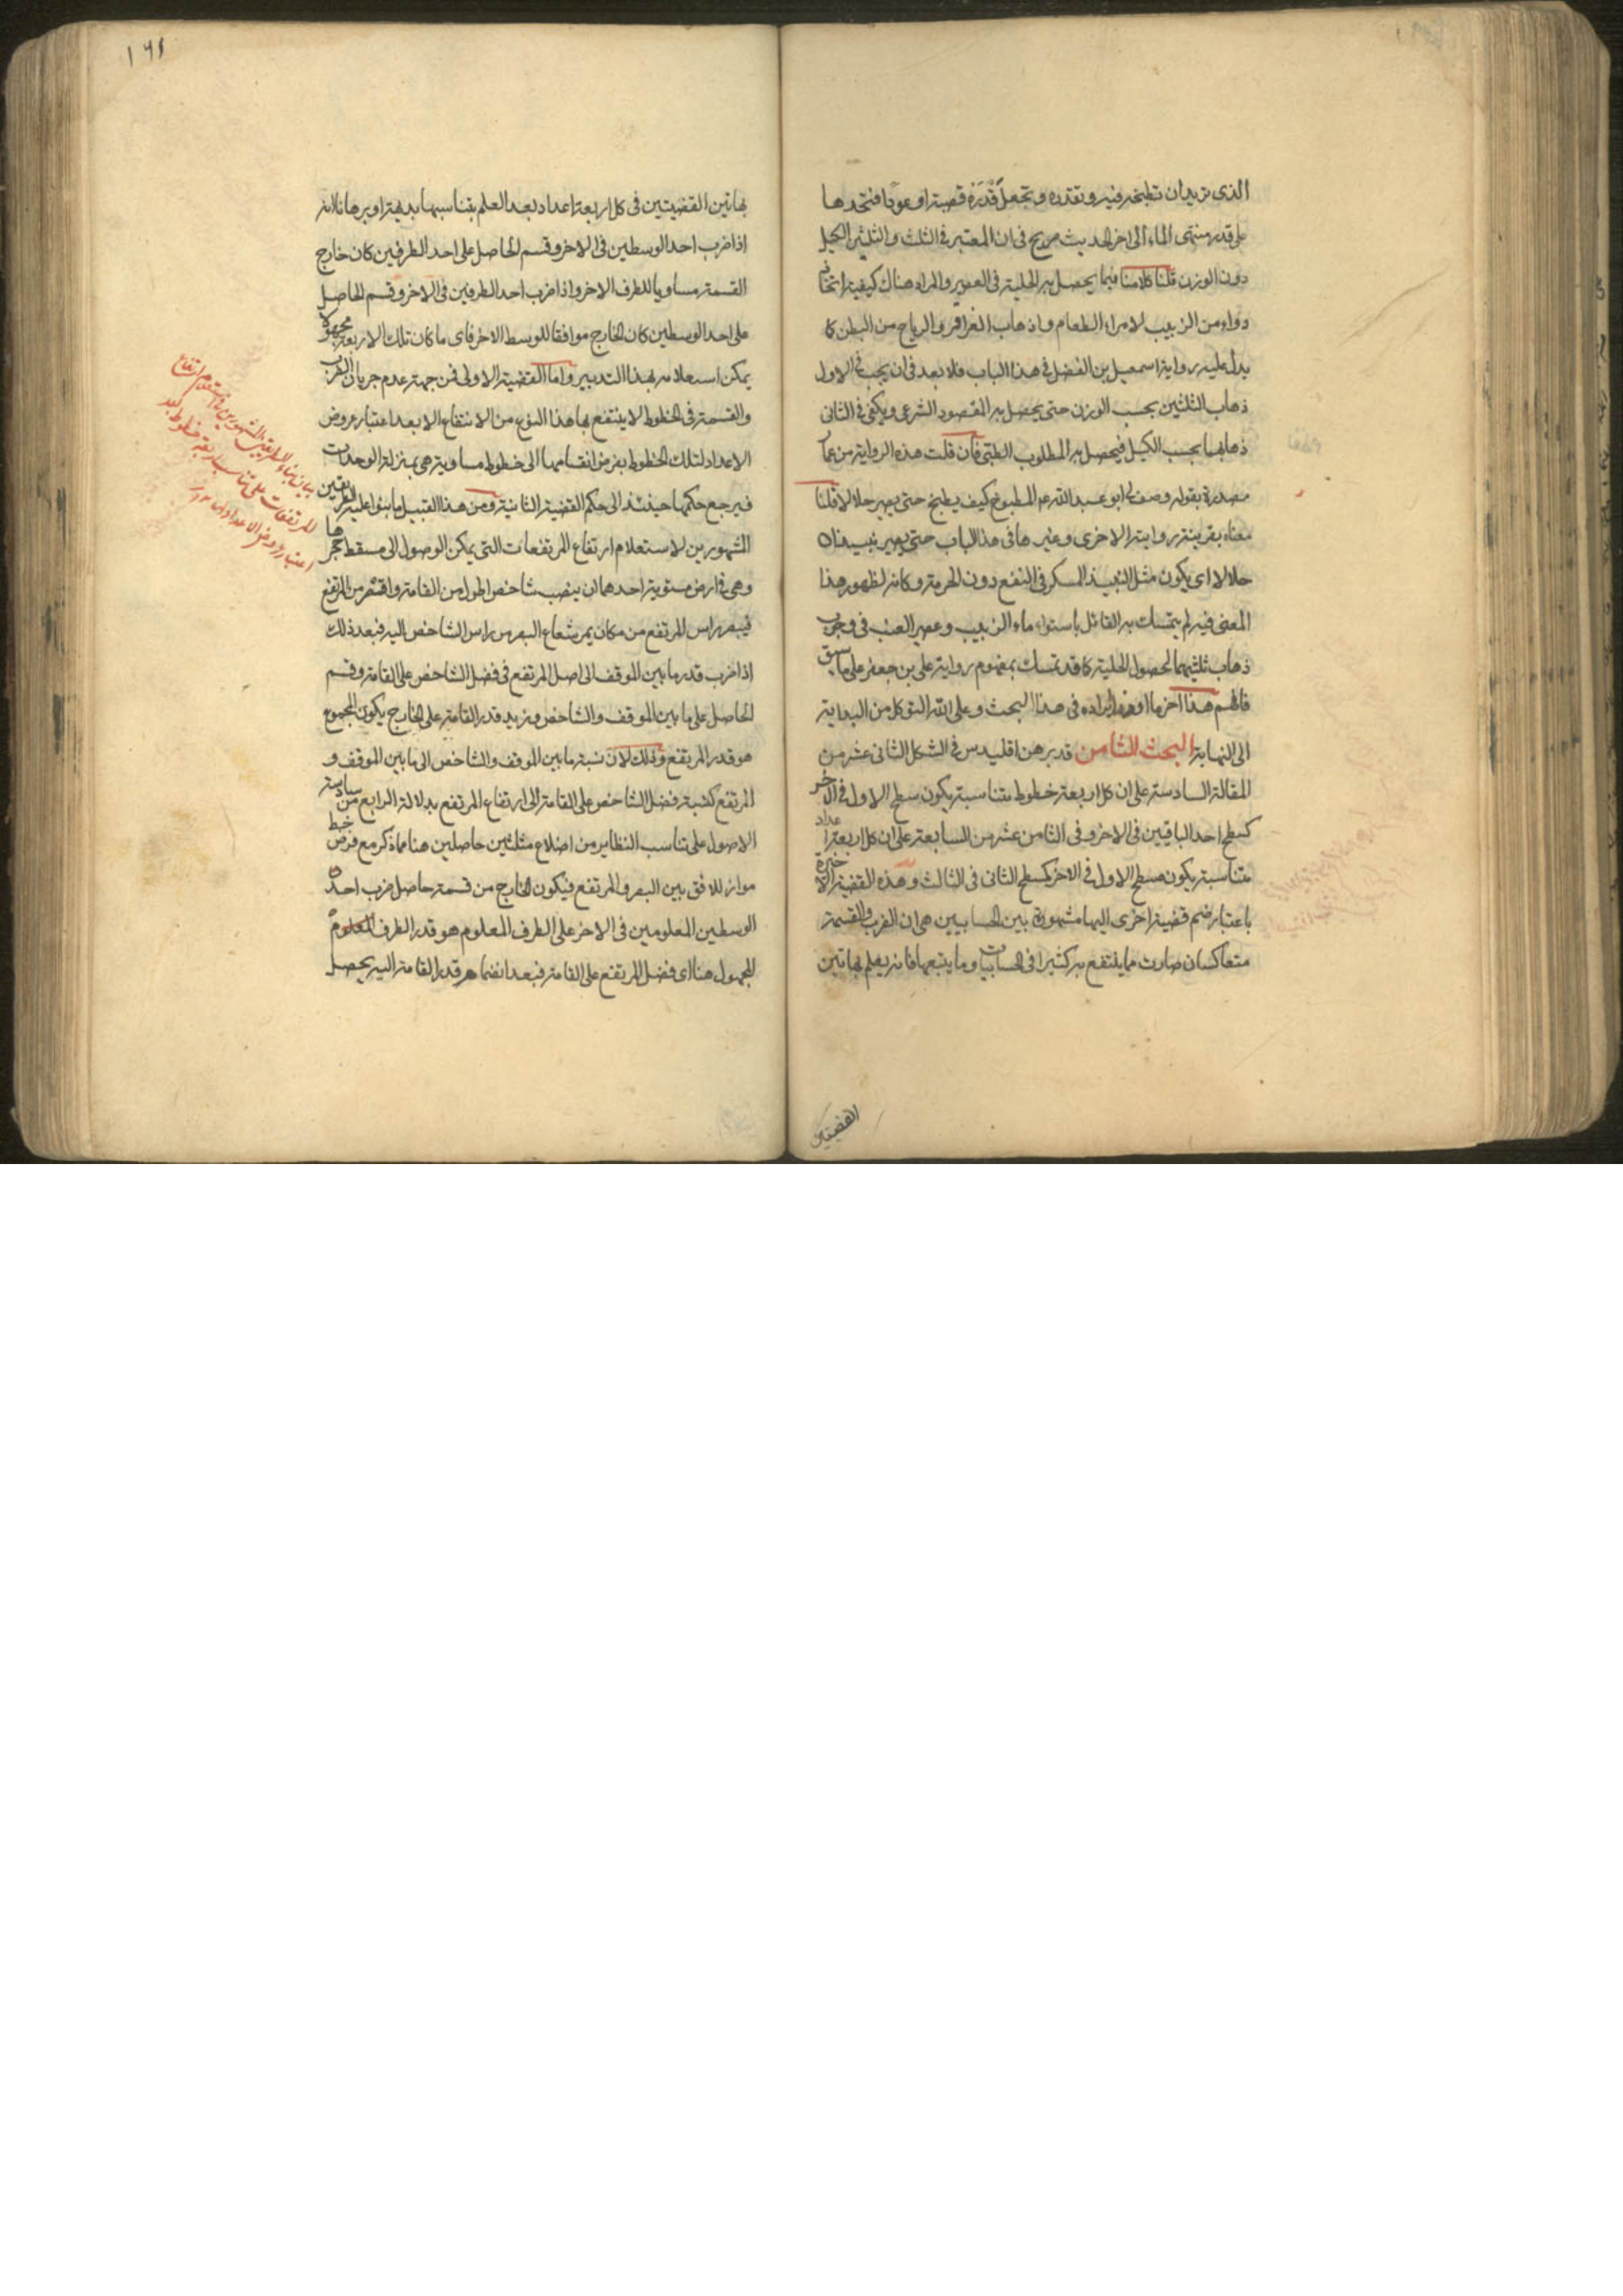 الذى تريد ان تطبخه فيه وتقدره وتجعل قدره قصبة او عودا فتحدها
على قدر منتهى الماء الى اخر الحديث صريح فى ان المعتبر فى الثلث والثلثين الكيل
دون الوزن قلنا كلامنا فيما يحصل به الحلية فى العصير والمراد هناك كيفية اتخاذ
دواء من الزبيب لامراء الطعام واذهاب القراقر والرياح من البطن كما
يدل عليه رواية اسمعيل بن الفضل فى هذا الباب فلا بعد فى ان يجب فى الاول
ذهاب الثلثين بحسب الوزن حتى يحصل به المقصود الشرعى ويكفى فى الثانى
ذهابهما بحسب الكيل فيحصل به المطلوب الطبى فان قلت هذه الرواية من عمار
مصدرة بقوله وصف لى ابو عبد الله عم المطبوخ كيف يطبخ حتى يصير حلالا قلنا
معناه بقرينة روايته الاخرى وغيرها فى هذا الباب حتى يصير نبيذا
حلالا اى يكون مثل النبيذ المسكر فى النفع دون الحرمة وكانه لظهور هذا
المعنى فيه لم يتمسك به القائل باستواء ماء الزبيب وعصير العنب فى وجوب
ذهاب ثلثيهما لحصول الحلية كما قد تمسك بمفهوم رواية على بن جعفر على ما سبق
فافهم هذا اخر ما اوردنا ايراده فى هذا البحث وعلى الله التوكل من البداية
الى النهاية البحث الثامن قد برهن اقليدس فى الشكل الثانى عشر من
المقالة السادسة على ان كل اربعة خطوط متناسبة يكون سطح الاول فى الاخر
كسطح احد الباقيين فى الاخر وفى الثامن عشر من السابعة على ان كل اربعة اعداد
متناسبة يكون مسطح الاول فى الاخر كمسطح الثانى فى الثالث وهذه القضية الاخيرة
باعتبار ضم قضية اخرى اليها مشهورة بين الحسابيين هى ان الضرب والقسمة
متعاكسان صارت مما ينتفع به كثيرا فى الحسابيات وما يتبعها فانه يعلم بهاتين
القضيتين
١٦١
بهاتين القضيتين فى كل اربعة اعداد بعد العلم بتناسبها بديهة او برهانا انه
اذا ضرب احد الوسطين فى الاخر وقسم الحاصل على احد الطرفين كان خارج
القسمة مساويا للطرف الاخر واذا ضرب احد الطرفين فى الاخر وقسم الحاصل
على احد الوسطين كان الخارج موافقا للوسط الاخر فاى ما كان تلك الاربعة مجهولا
يمكن استعلامه بهذا التدبير واما القضية الاولى فمن جهة عدم جريان الضرب
والقسمة فى الخطوط لا ينتفع بها هذا النوع من الانتفاع الا بعد اعتبار عروض
الاعداد لتلك الخطوط بفرض انقسامها الى خطوط مساوية هى بمنزلة الوحدات
فيرجع حكمها حينئذ الى حكم القضية الثانية ومن هذا القبيل ما بنوا عليه الطريقين
المشهورين لاستعلام ارتفاع المرتفعات التى يمكن الوصول الى مسقط حجرها
وهى فى ارض مستوية احدهما ان ينصب شاخص اطول من القامة واقصر من المرتفع
فيبصر راس المرتفع من مكان يمر شعاع البصر من راس الشاخص اليه فبعد ذلك
اذا ضرب قدر ما بين الموقف الى اصل المرتفع فى فضل الشاخص على القامة وقسم
الحاصل على ما بين الموقف والشاخص وزيد قدر القامة على الخارج يكون المجموع
هو قدر المرتفع وذلك لان نسبة ما بين الموقف والشاخص الى ما بين الموقف و
المرتفع كنسبة فضل الشاخص على القامة الى ارتفاع المرتفع بدلالة الرابع من سادسة
الاصول على تناسب النظاير من اضلاع مثلثين حاصلين هنا مما ذكر مع فرض خط
مواز للافق بين البصر والمرتفع فيكون الخارج من قسمة حاصل ضرب احد
الوسطين المعلومين فى الاخر على الطرف المعلوم هو قدر الطرف
المجهول هنا اى فضل المرتفع على القامة فبعد انضمام قدر القامة اليه يحصل
بيان بناء الطريقين المشهورين فى استعلام ارتفاع
المرتفعات على تناسب اربعة خطوط بعد
اعتبار عروض الاعداد